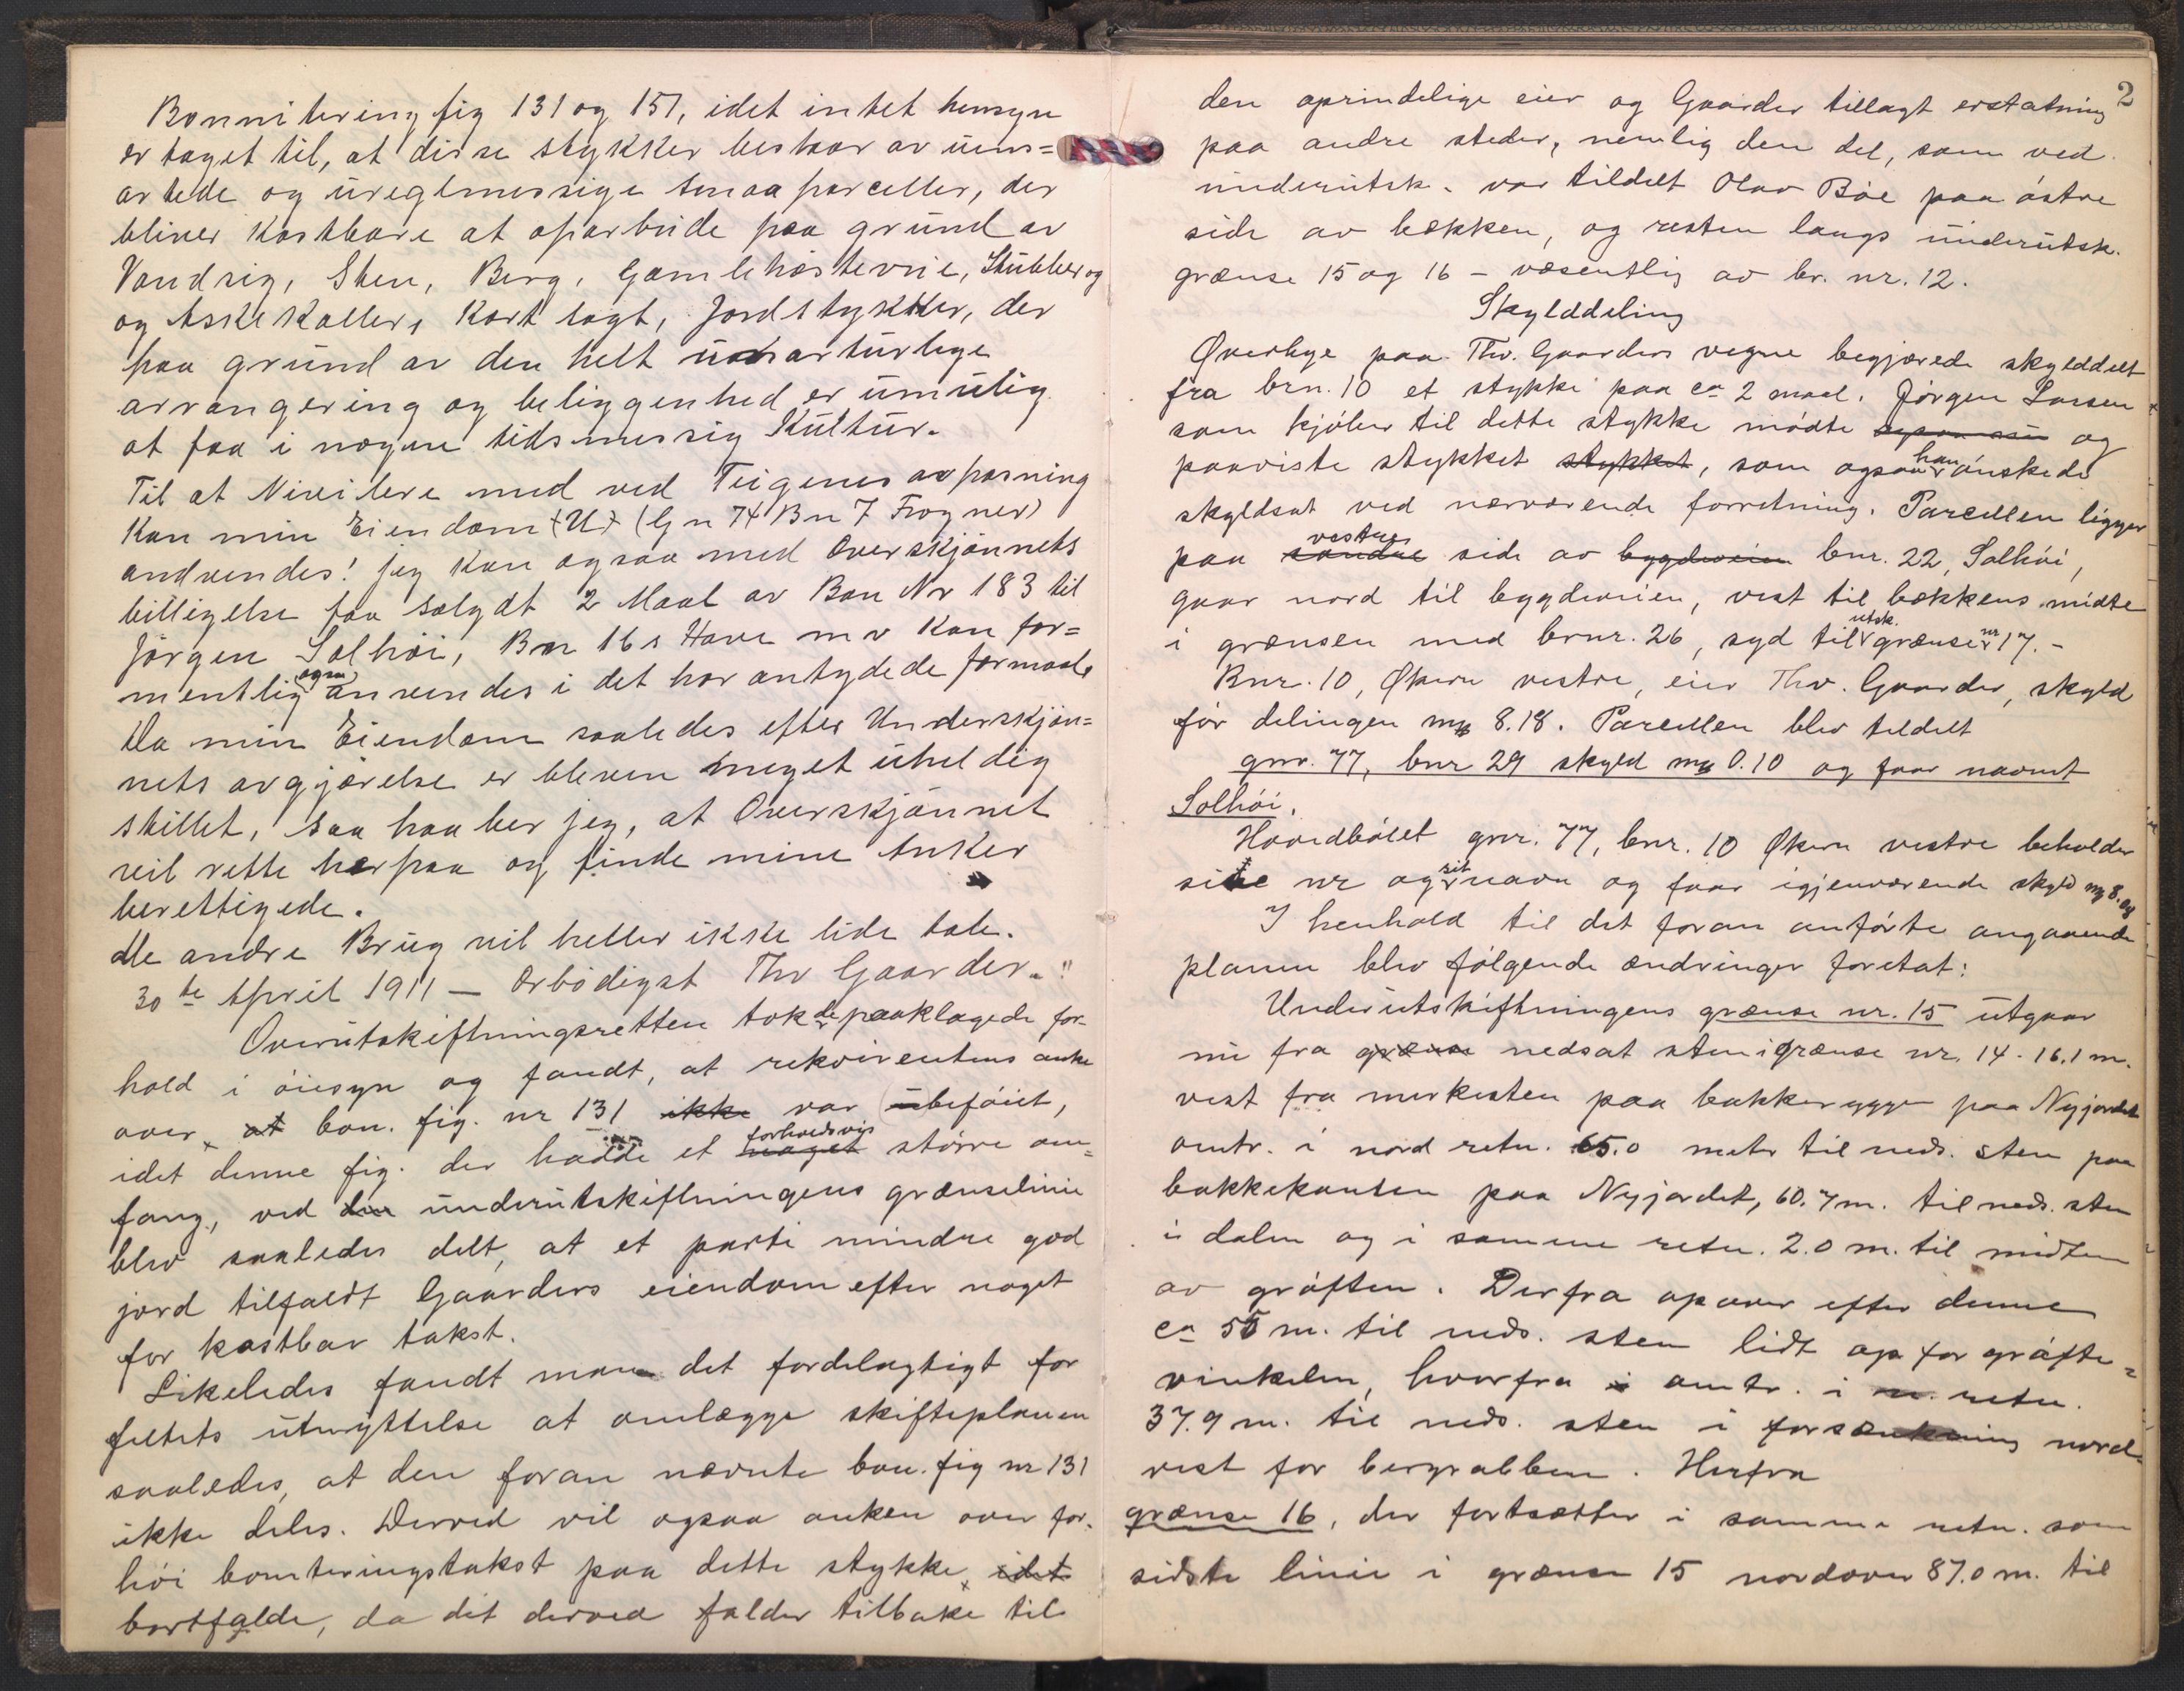 Bonnitering fig 131 og 151, idet intet hensyn
er taget til, at disse stykker bestaar av uens=
artede og ureglmessige smaa parceller, der
bliver kostbare at oparbeide paa grund av
Vandsig, Sten, Berg, Gamlehesteveie, Stubber og
og Askekaller, Kort sagt, Jordstykker, der
paa grund av den helt unarturlige
arrangering og beliggenhed er umulig
at faa i nogen tidsmessig Kultur.
Til at Nivilere med ved Teigenes avpasning
Kan min Eiendom (U) (Gn 74 Bn 7 Frogner)
andvendes! jeg kan ogsaa med Overskjønnets
billigelse faa solgdt 2 Maal av Bon Nr 183 til
Jørgen Solhøi, Bn 16s Have mv Kan for=
mentlig ogsaa anvendes i det her antydede formaal.
Da min Eiendom saaledes efter Underskjøn=
nets avgjørelse er bleven meget uheldig
stillet, saa haaber jeg, at Overskjønnet
vil rette herpaa og finde mine Anker
berettigede.
De andre Brug vil heller ikke lide tab.
30te April 1911 — Ærbødigst Thv Gaarder."
Overutskiftningsretten tok de paaklagede for-
hold i øiesyn og fandt, at rekvirentens anke
over at bon. fig. nr 131 ikke var ubeføiet,
idet denne fig. der hadde et noget forholdsvis større om=
fang, ved den underutskiftningens grænselinie
blev saaledes delt, at et parti mindre god
jord tilfaldt Gaarders eiendom efter noget
for kostbar takst.
Likeledes fandt man det fordelagtigt for
feltets utnyttelse at omlægge skifteplanen
saaledes, at den foran nævnte bon. fig nr 131
ikke deles. Derved vil ogsaa anken over for
høi boniteringstakst paa dette stykke idet
bortfalde, da det derved falder tilbake til
2
den oprindelige eier og Gaarder tillagt erstatning
paa andre steder, nemlig den del, som ved
underutsk. var tildelt Olav Bøe paa østre
side av bækken, og resten langs underutsk.
grænse 15 og 16 – væsentlig av br. nr. 12.
Skylddeling
Øverbye paa Thv. Gaarders vegne begjærede skylddelt
fra brn. 10 et stykke paa ca 2 maal. Jørgen Larsen
som kjøber til dette stykke mødte og
paaviste stykket stykket, som ogsaa han ønskede
skyldsat ved nærværende forretning. Parcellen ligger
paa søndre vestre side av bygdeveien bnr. 22, Solhøi,
gaar nord til bygdeveien, vest til bækkens midte
i grænsen med brnr. 26, syd til utsk. grænse nr 17. –
Bnr. 10, Økern vestre, eier Thv. Gaarder, skyld
før delingen mk 8.18. Parcellen blev tildelt
gnr. 77, bnr 29 skyld mk 0.10 og faar navnet
Solhøi.
Hovedbølet gnr. 77, bnr. 10 Økern vestre beholder
sitt nr og sit navn og faar igjenværende skyld mk 8.08
I henhold til det foran anførte angaaende
planen blev følgende ændringer foretat:
Underutskiftningens grænse nr. 15 utgaar
nu fra grænse nedsat sten i grænse nr. 14. 16.1 m.
vest fra merkesten paa bakkeryggen paa Nyjordet
omtr. i nord retn. 65.0 meter til neds. sten paa
bakkekanten paa Nyjordet, 60.7 m. til neds. sten
i dalen og i samme retn. 2.0 m. til midten
av grøften. Derfra opover efter denne
ca 55 m. til neds. sten lidt op for grøfte=
vinkelen, hvorfra i omtr. i n. retn.
37.9 m. til neds. sten i forsænkning nord
vest for bergrabben. Herfra
grænse 16, der fortsætter i samme retn. som
sidste linie i grænse 15 nordover 87.0 m. til